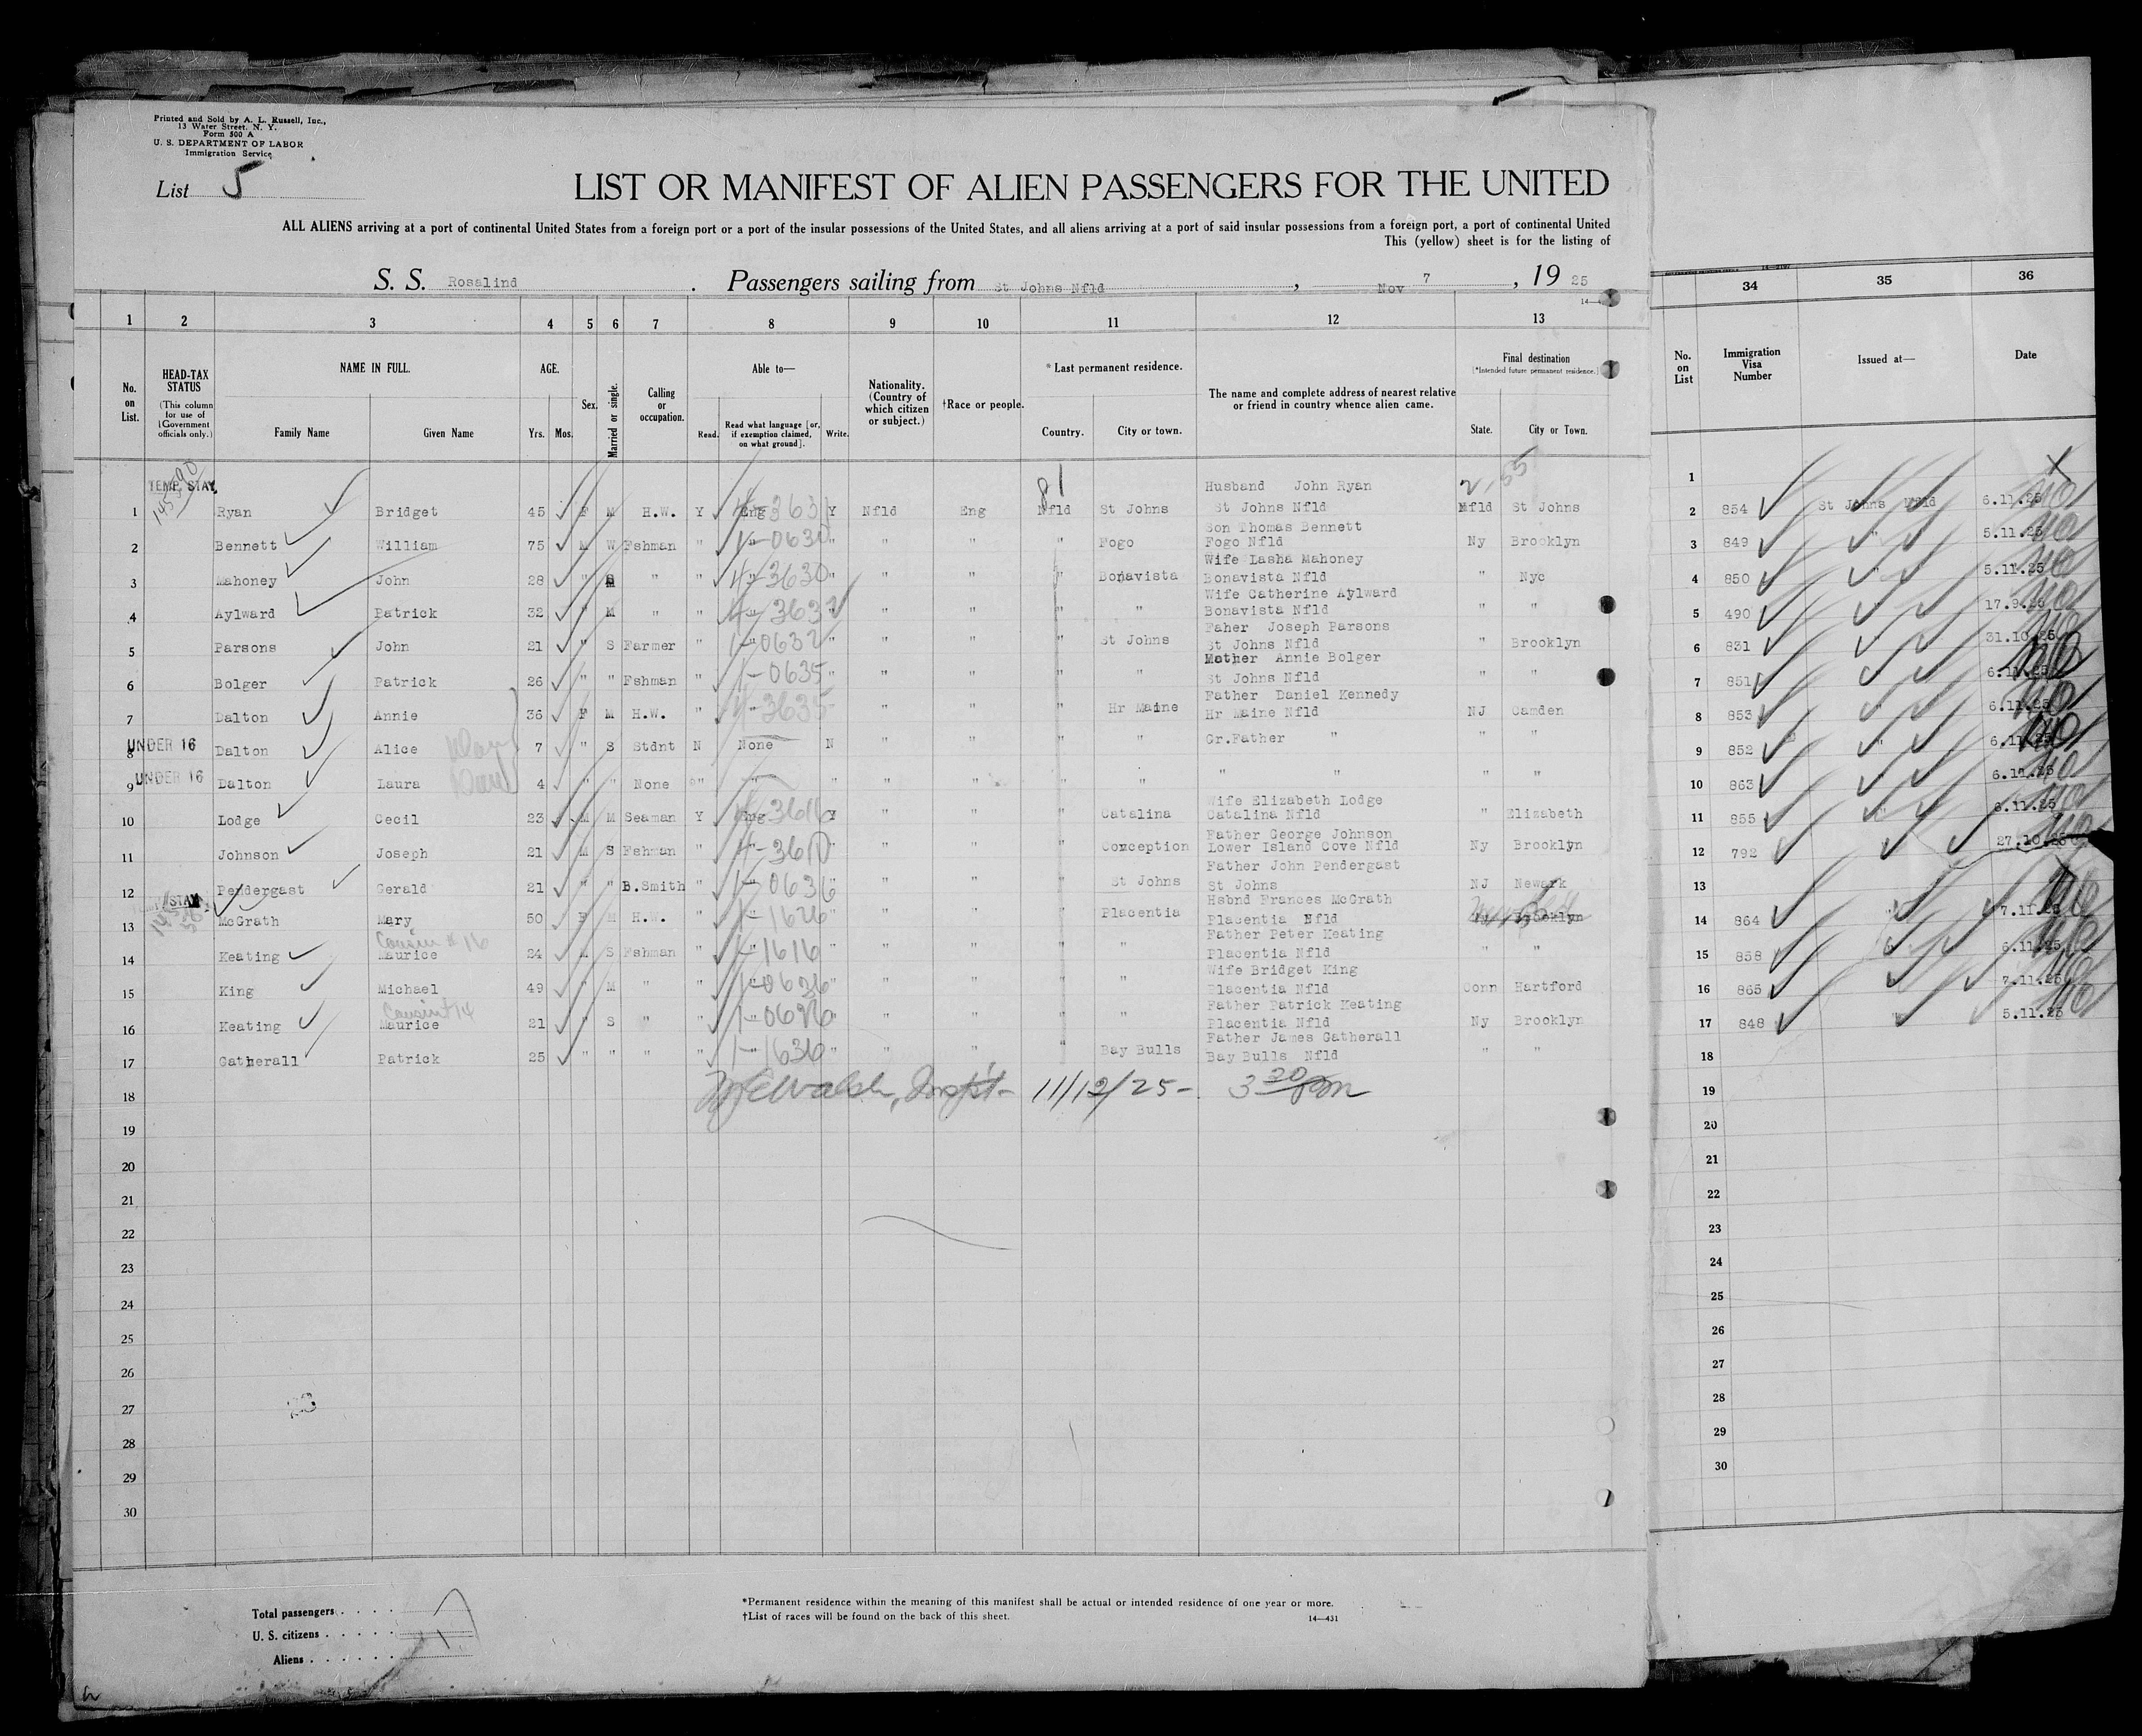 Printed and Sold by A. L. Russell, Inc.,
13 Water Street, N. Y.
Form 500 A
U. S. DEPARTMENT OF LABOR
Immigration Service
List 5
LIST OR MANIFEST OF ALIEN PASSENGERS FOR THE UNITED
ALL ALIENS arriving at a port of continental United States from a foreign port or a port of the insular possessions of the United States, and all aliens arriving at a port of said insular possessions from a foreign port, a port of continental United
This (yellow) sheet is for the listing of
S. S. Rosalind . Passengers sailing from St Johns Nfld , Nov 7 , 19 25
1 2 3 4 5 6 7 8 9 10 11 12 13
No. on List.
HEAD-TAX STATUS
(This column for use of Government officials only.)
NAME IN FULL.
Family Name Given Name
AGE.
Yrs. Mos.
Sex.
Married or single.
Calling or occupation.
Able to—
Read. Read what language [or, if exemption claimed, on what ground]. Write.
Nationality. (Country of which citizen or subject.)
†Race or people.
*Last permanent residence.
Country. City or town.
The name and complete address of nearest relative or friend in country whence alien came.
Final destination
[*Intended future permanent residence.]
State. City or Town.
34 35 36
No. on List
Immigration Visa Number
Issued at—
Date
TEMP. STAY 81 Husband John Ryan
1 Ryan Bridget 45 F M H.W. Y Eng 3631 Y Nfld Eng Nfld St Johns St Johns Nfld Nfld St Johns
Son Thomas Bennett
2 Bennett William 75 M W Fshman " " 1-0630 " " " " Fogo Fogo Nfld Ny Brooklyn
Wife Lasha Mahoney
3 Mahoney John 28 " " " " 4-3630 " " " " Bonavista Bonavista Nfld " Nyc
Wife Catherine Aylward
4 Aylward Patrick 32 " M " " " 3632 " " " " " Bonavista Nfld " "
Faher Joseph Parsons
5 Parsons John 21 " S Farmer " " 1-0632 " " " " St Johns St Johns Nfld " Brooklyn
Mother Annie Bolger
6 Bolger Patrick 26 " " Fshman " " 1-0635 " " " " " St Johns Nfld " "
Father Daniel Kennedy
7 Dalton Annie 36 F M H.W. " " 4-3635 " " " " Hr Maine Hr Maine Nfld NJ Camden
8 UNDER 16 Dalton Alice 7 " S Stdnt N None N " " " " Gr.Father " " "
9 UNDER 16 Dalton Laura 4 " " None " " " " " " " " " " "
Wife Elizabeth Lodge
10 Lodge Cecil 23 M M Seaman Y Eng Y " " " Catalina Catalina Nfld " Elizabeth
Father George Johnson
11 Johnson Joseph 21 M S Fshman " " " " " " Conception Lower Island Cove Nfld Ny Brooklyn
Father John Pendergast
12 Pendergast Gerald 21 " " B.Smith " " 1-0636 " " " " St Johns St Johns NJ Newark
STAY Hsbnd Frances McGrath
13 McGrath Mary 50 F M H.W. " " 1-1626 " " " " Placentia Placentia Nfld Ny Brooklyn
Cousin # 16 Father Peter Keating
14 Keating Maurice 24 M S Fshman " " 1616 " " " " " Placentia Nfld " "
Wife Bridget King
15 King Michael 49 " M " " " 1-0636 " " " " " Placentia Nfld Conn Hartford
Cousin # 14 Father Patrick Keating
16 Keating Maurice 21 " S " " " " " " " " Placentia Nfld Ny Brooklyn
Father James Gatherall
17 Gatherall Patrick 25 " " " " " 1-1636 " " " " Bay Bulls Bay Bulls Nfld " "
18 Walsh, Inspt- 11/12/25- 3 30 pm
19
20
21
22
23
24
25
26
27
28
29
30
1
2 854 St Johns Nfld 6.11.25
3 849 " 5.11.25
4 850 " 5.11.25
5 490 " 17.9.25
6 831 " 31.10.25
7 851 " 6.11.25
8 853 " 6.11.25
9 852 " 6.11.25
10 863 " 6.11.25
11 855 " 6.11.25
12 792 " 27.10.25
13
14 864 " 7.11.25
15 858 " 6.11.25
16 865 " 7.11.25
17 848 " 5.11.25
18
19
20
21
22
23
24
25
26
27
28
29
30
Total passengers . . . .
U. S. citizens . . . . .
Aliens . . . . . .
17
*Permanent residence within the meaning of this manifest shall be actual or intended residence of one year or more.
†List of races will be found on the back of this sheet.
14—431